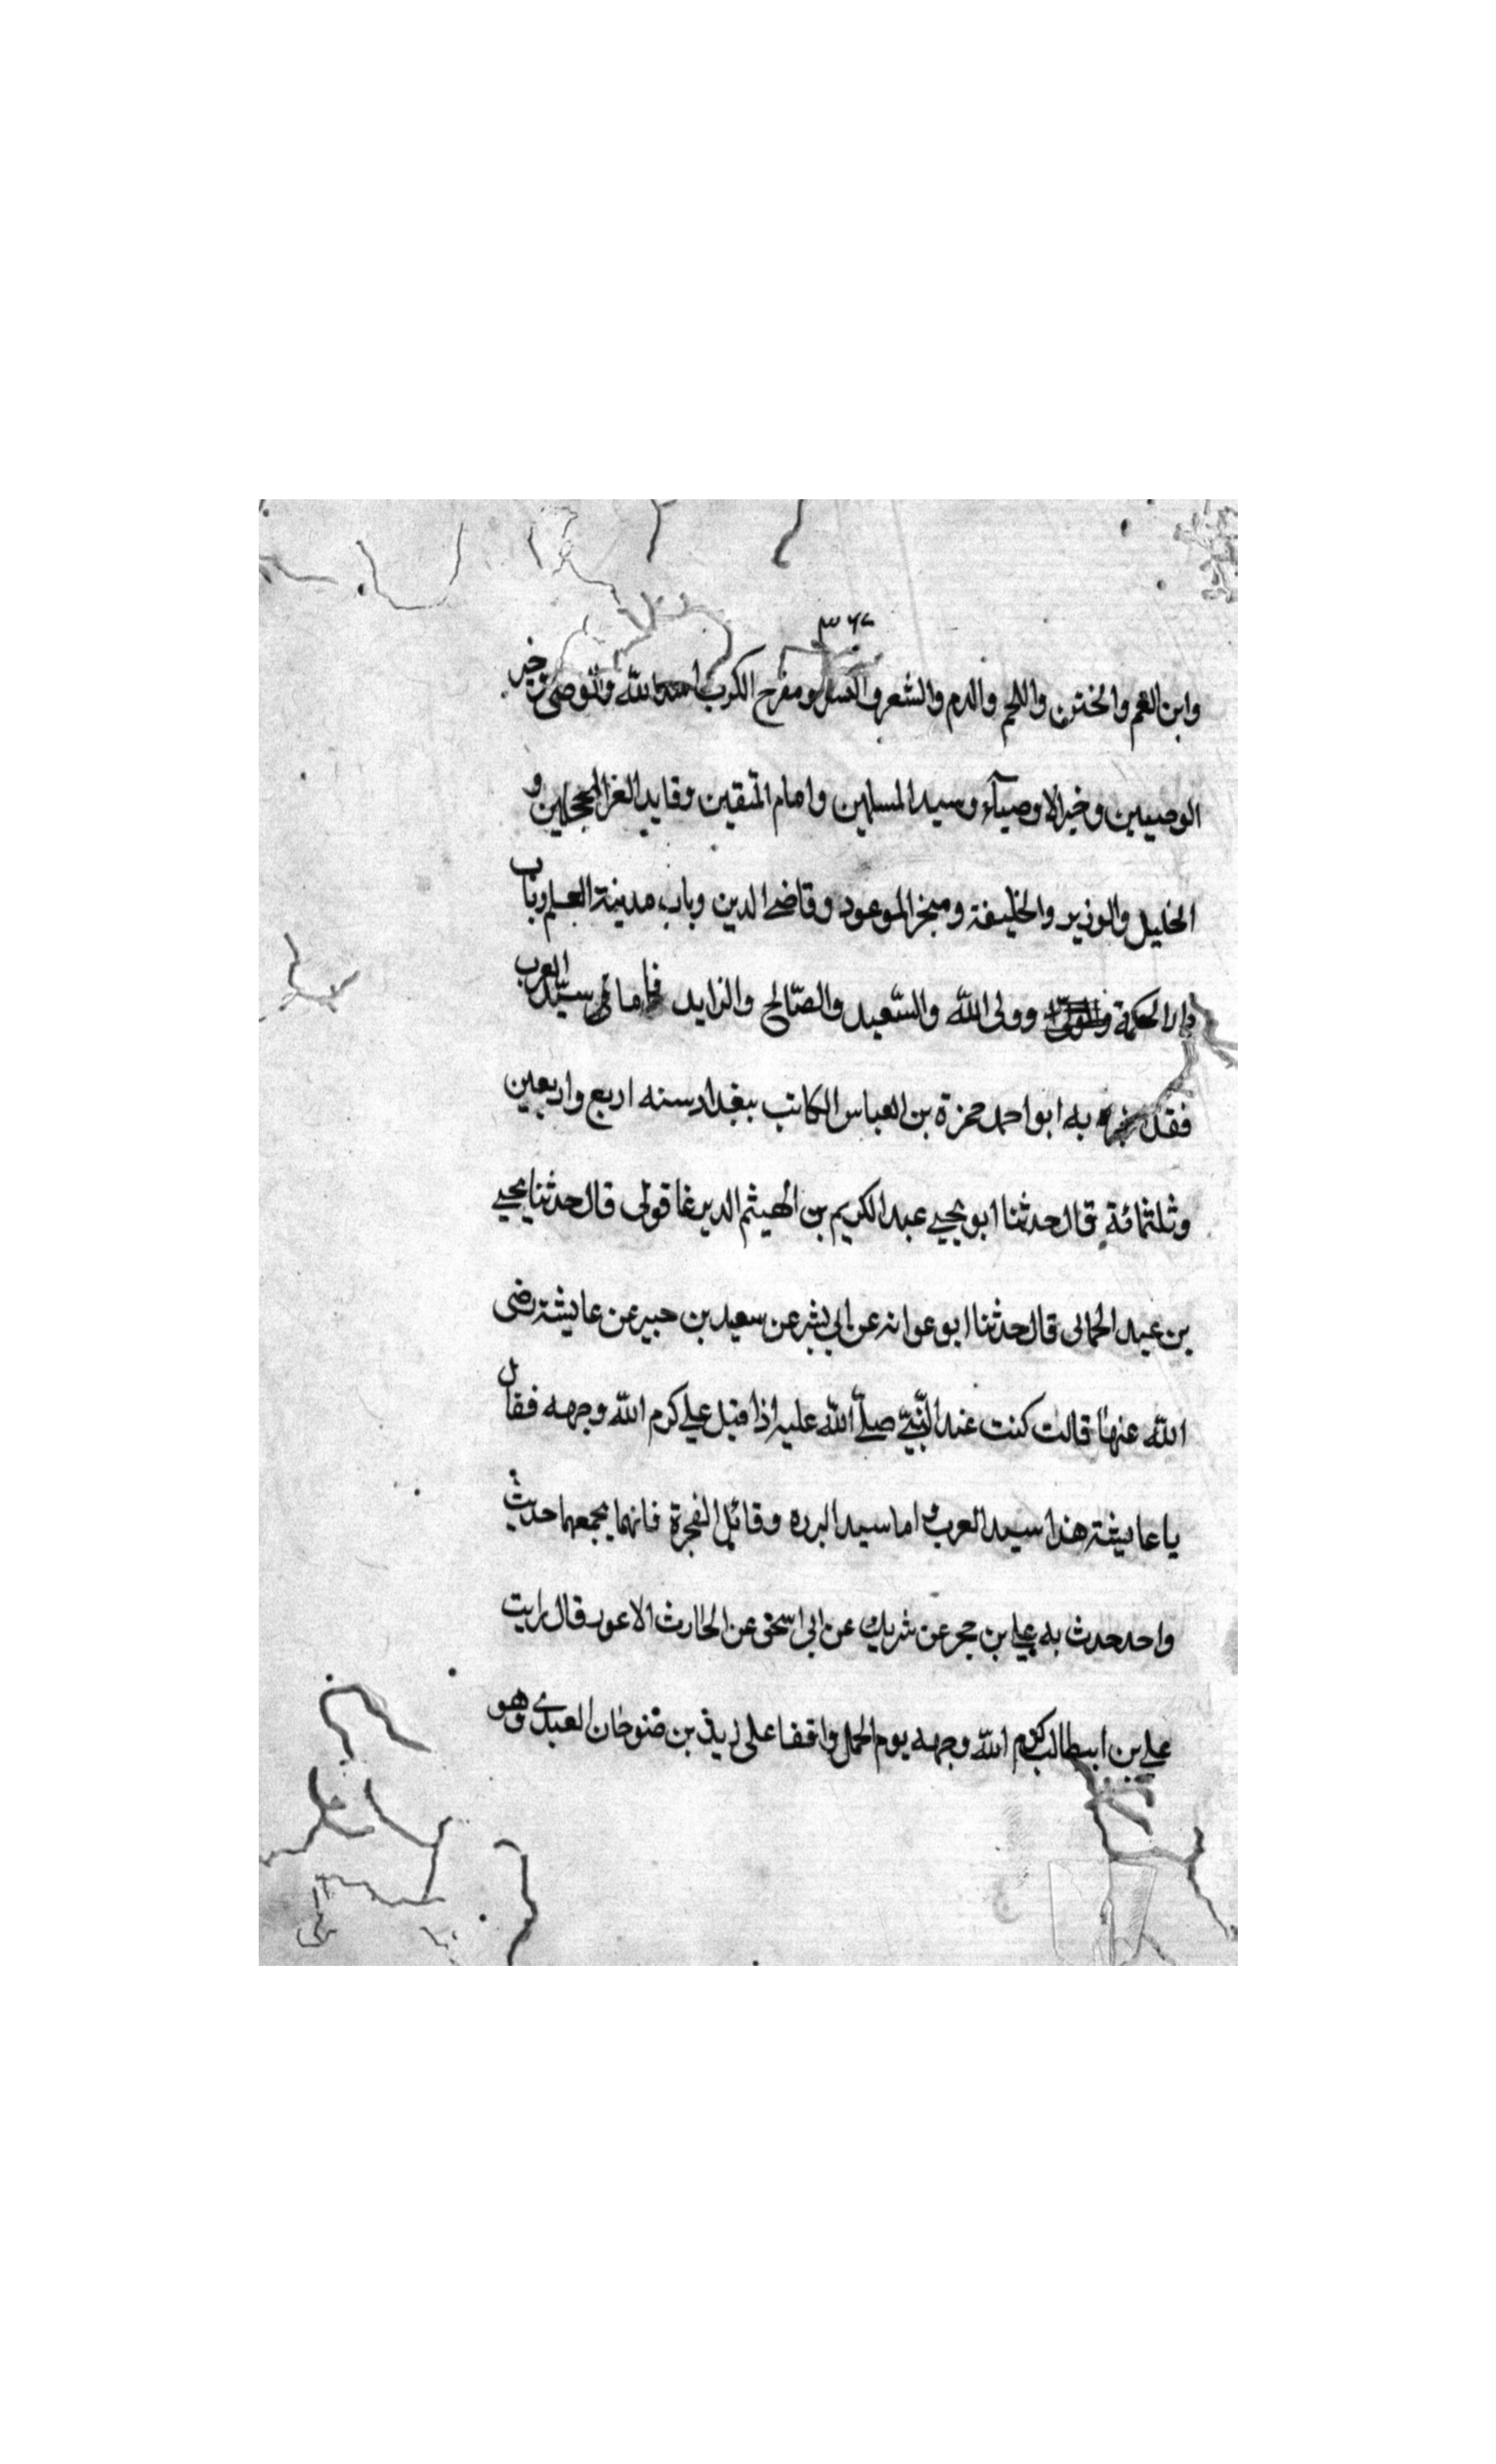 ٣٦٤
وابن العم والختن واللحم والدم والشعر و ومفرح الكرب اسد الله والوصى خير
الوصيين وخير الاوصيآء وسيد المسلمين وامام المتقين وقايد الغر المحجلين و
الخليل والوزير والخليفة ومنجز الموعود وقاضى الدين وباب مدينة العلم وباب
دار الحكمة وولى الله والسّعيد والصّالح والزايد فاما سيّد العرب
فقد به ابو احمد حمزة بن العباس الكاتب ببغداد سنه اربع واربعين
وثلثمائة قال حدثنا ابو يحيى عبد الكريم بن الهيثم الديرعاقولى قال حدثنا يحيى
بن عبد الحمانى قال حدثنا ابو عوانه عن ابى بشر عن سعيد بن جبير عن عايشة رضى
الله عنها قالت كنت عند النّبىّ صلّى الله عليه اذا قبل على كرم الله وجهه فقال
يا عايشة هذا سيد العرب و اما سيد البرره وقاتل الفجرة فانهما يجمعهما حديث
واحد حدث به على بن حجر عن شريك عن ابى اسحق عن الحارث الاعور قال رايت
على بن ابيطالب كرم الله وجهه يوم الجمل واقفا على زيد بن صوحان العبدى وهو